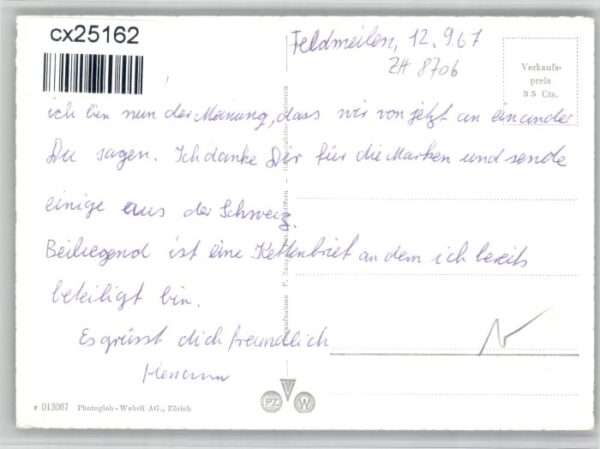 cx25162
Feldmeilen, 12.9.67
ZH 8706
Verkaufs-
preis
35 Cts.
ich bin nun der Meinung, dass wir von jetzt an einander
Du sagen. Ich danke Dir für die Marken und sende
einige aus der Schweiz.
Beiliegend ist eine Kettenbrief an dem ich bereits
beteiligt bin.
Es grüsst dich freundlich
Hermann
013067 Photoglob-Wehrli AG., Zürich
PZ W